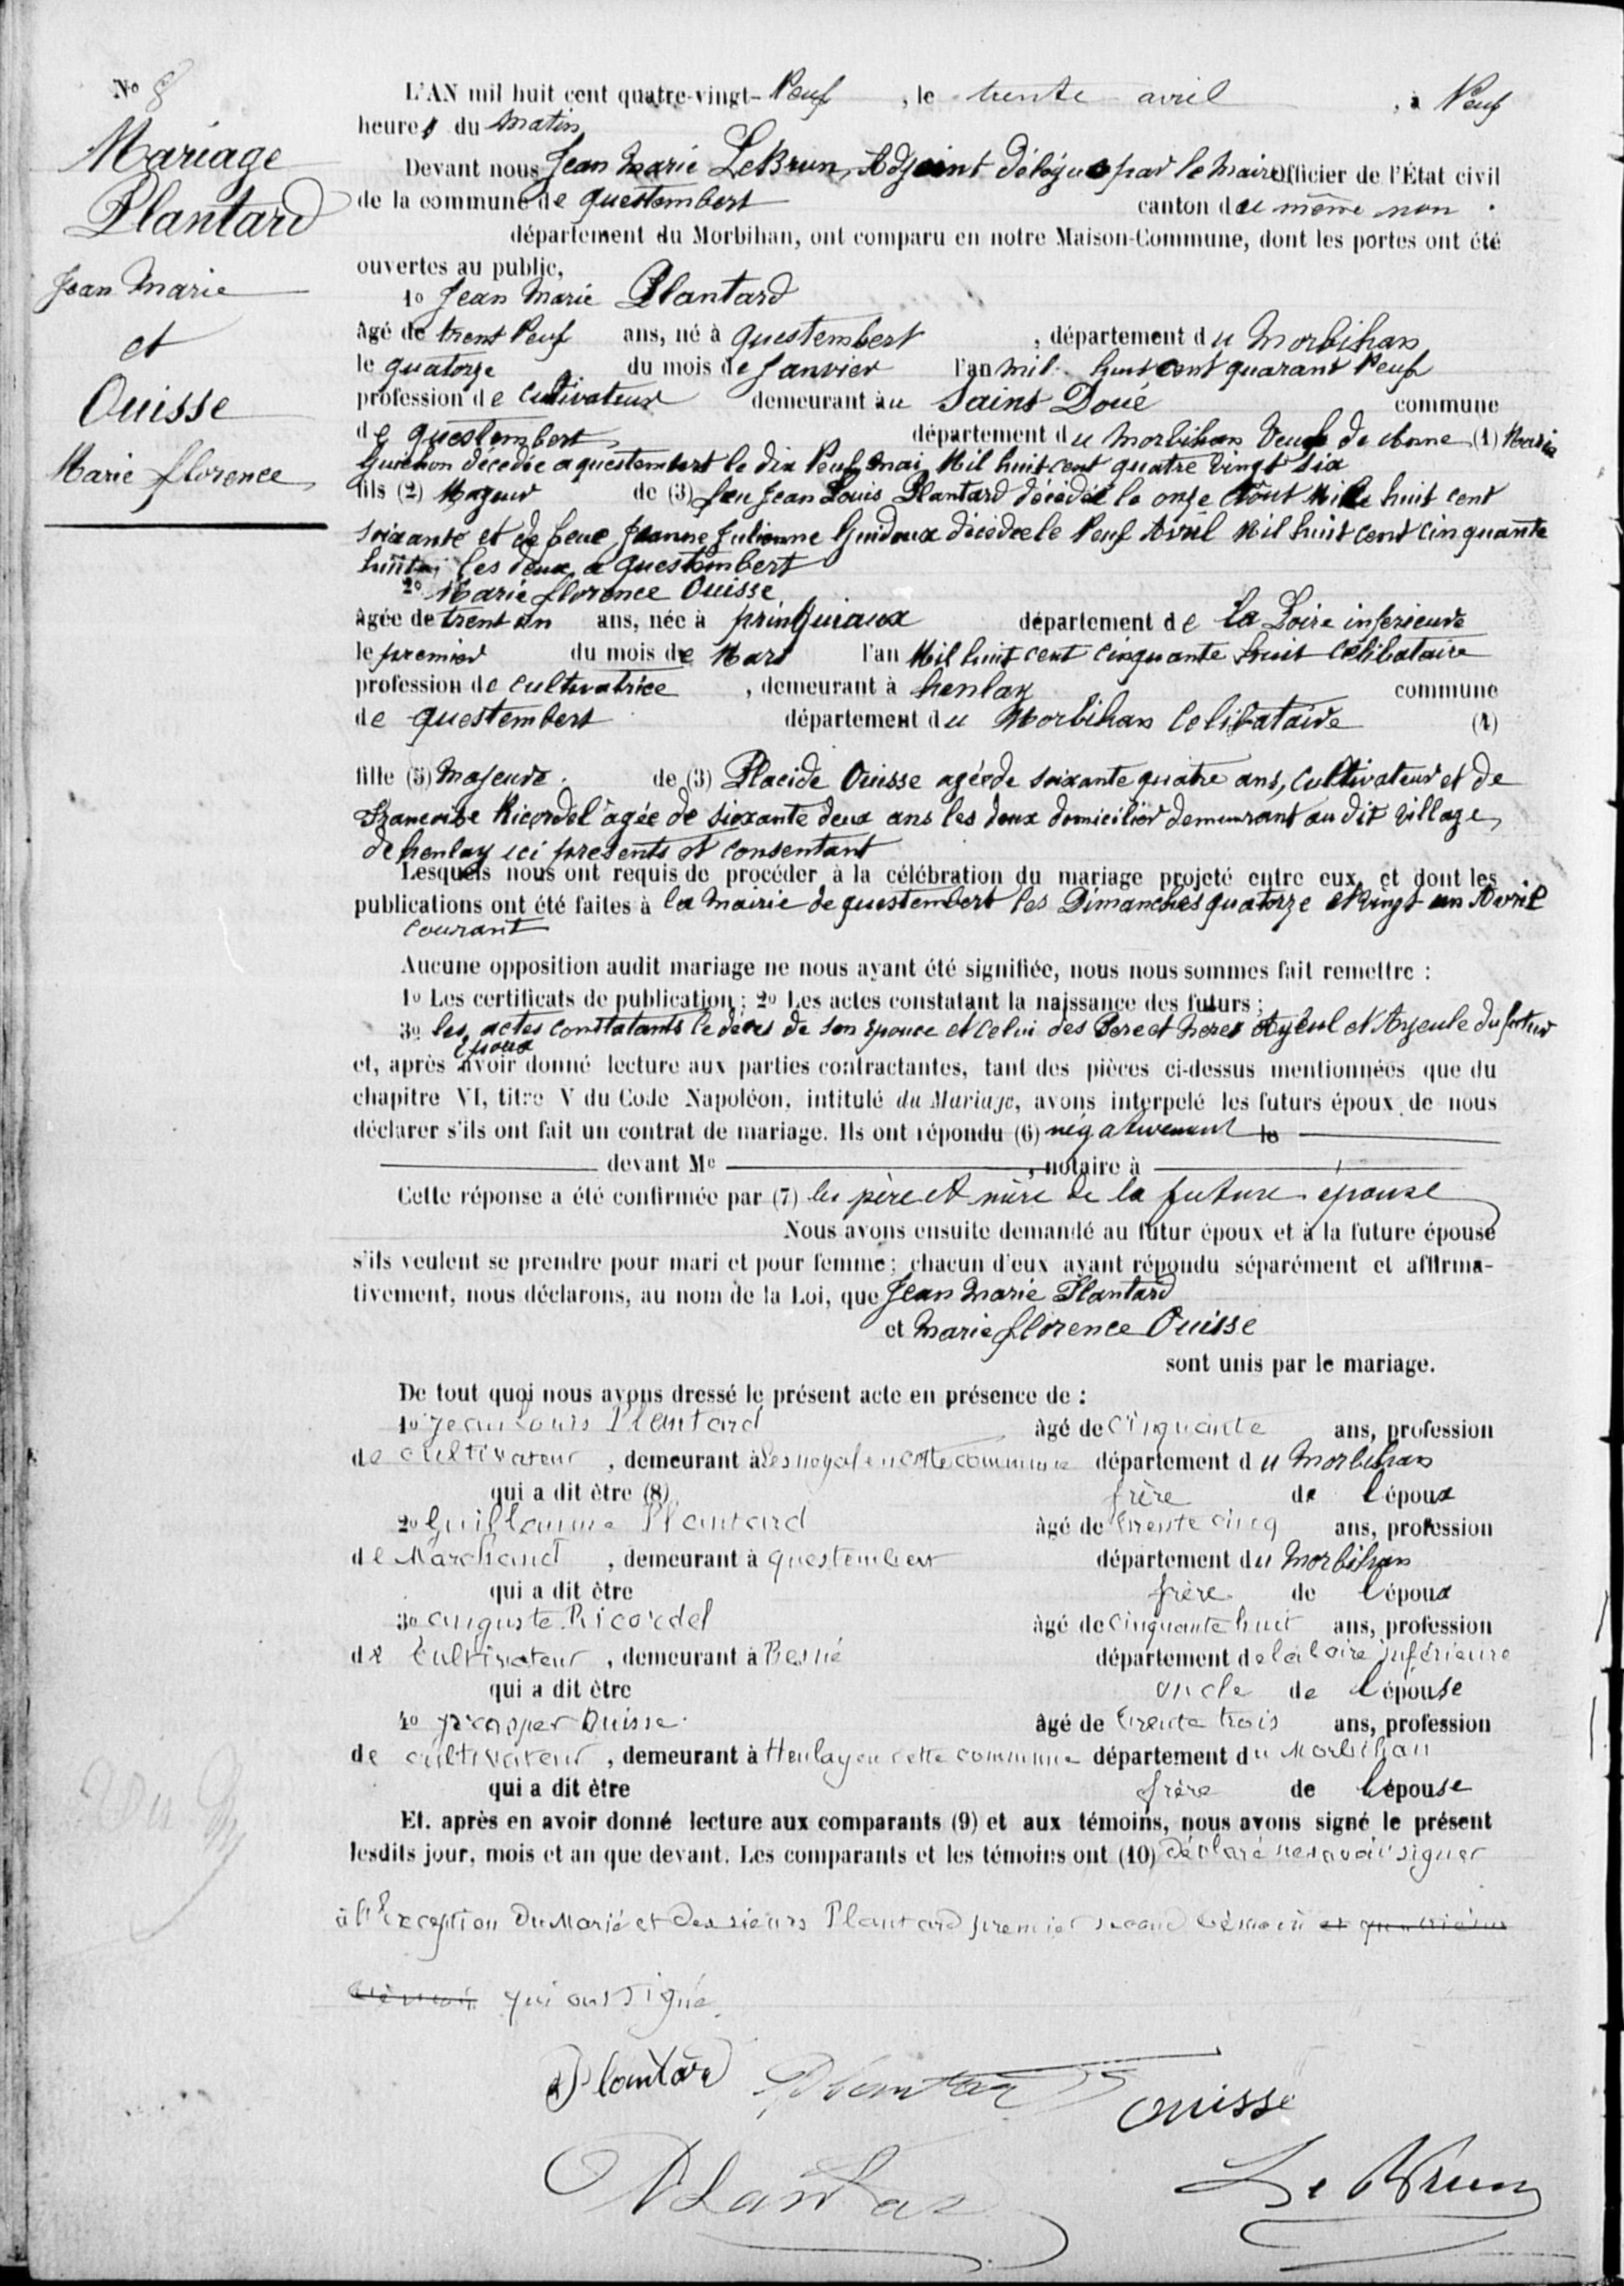 No 8
Mariage
Plantard
Jean Marie
et
Ouisse
Marie florence
L'AN mil huit cent quatre-vingt-Neuf, le trente avril, à Neuf
heures du Matin
Devant nous Jean Marie LeBrun, Adjoint délégué par le Maire Officier de l'État civil
de la commune de questembert canton du même nom.
département du Morbihan, ont comparu en notre Maison-Commune, dont les portes ont été
ouvertes au public,
1o Jean Marie Plantard
âgé de trent Neuf ans, né à questembert, département du Morbihan
le quatorze du mois de Janvier l'an mil huit cent quarant Neuf
profession de cultivateur demeurant au Saint Doué commune
de questembert département du Morbihan Veuf de Anne (1) Maria
Guichon décedée a questembert le dix Neuf mai Mil huit cent quatre vingt six
fils (2) Majeur de (3) feu Jean Louis Plantard décédée le onze Aout Mille huit cent
soixante et de feue Jeanne Julienne Guidoux décédée le Neuf Avril Mil huit cent cinquante
huit les deux a questembert
2o Marie florence Ouisse
âgée de trent un ans, née à prinquiaux département de La Loire inferieure
le premier du mois de Mars l'an Mil huit cent cinquante huit célibataire
profession de cultivatrice, demeurant à henlay commune
de questembert département du Morbihan Celibataire (4)
fille (5) majeure. de (3) Placide Ouisse agée de soixante quatre ans, cultivateur et de
Francoise Ricordel agée de sioxante deux ans les deux domicilier demeurant au dit village
de henlay ici presents et consentant
Lesquels nous ont requis de procéder à la célébration du mariage projeté entre eux, et dont les
publications ont été faites à la Mairie de questembert les Dimanches quatorze et vingt un Avril
courant
Aucune opposition audit mariage ne nous ayant été signifiée, nous nous sommes fait remettre :
1o Les certificats de publication ; 2o Les actes constatant la naissance des futurs ;
3o les actes constatants le deces de son Epouce et celui des Pere et Meres Ayeul et Ayeule du futur
Epoux
et, après avoir donné lecture aux parties contractantes, tant des pièces ci-dessus mentionnées que du
chapitre VI, titre V du Code Napoléon, intitulé du Mariage, avons interpelé les futurs époux de nous
déclarer s'ils ont fait un contrat de mariage. Ils ont répondu (6) négativement le
devant Me, notaire à
Cette réponse a été confirmée par (7) les père et mère de la future épouse
Nous avons ensuite demandé au futur époux et à la future épouse
s'ils veulent se prendre pour mari et pour femme; chacun d'eux ayant répondu séparément et affirma-
tivement, nous déclarons, au nom de la Loi, que Jean Marie Plantard
et Marie florence Ouisse
sont unis par le mariage.
De tout quoi nous avons dressé le présent acte en présence de :
1o Jean Louis Plantard âgé de cinquante ans, profession
de cultivateur, demeurant à Lesnoyal en cette commune département du Morbihan
qui a dit être (8) frère de l'époux
2o Guillaume Plantard âgé de trente cinq ans, profession
de Marchand, demeurant à questembert département du Morbihan
qui a dit être frère de l'époux
3o auguste Ricordel âgé de cinquante huit ans, profession
de Cultivateur, demeurant à Besné département de la Loire inférieure
qui a dit être oncle de l'épouse
4o prosper Ouisse âgé de trente trois ans, profession
de cultivateur, demeurant à Henlay en cette commune département du Morbihan
qui a dit être frère de l'épouse
Et, après en avoir donné lecture aux comparants (9) et aux témoins, nous avons signé le présent
lesdits jour, mois et an que devant. Les comparants et les témoins ont (10) déclaré ne savoir signer
à l'Exception Du Marié et Des sieurs Plantard premier second témoin et quatrième
témoin qui ont signé
Plantard Plantard Ouisse
Plantar Le Brun